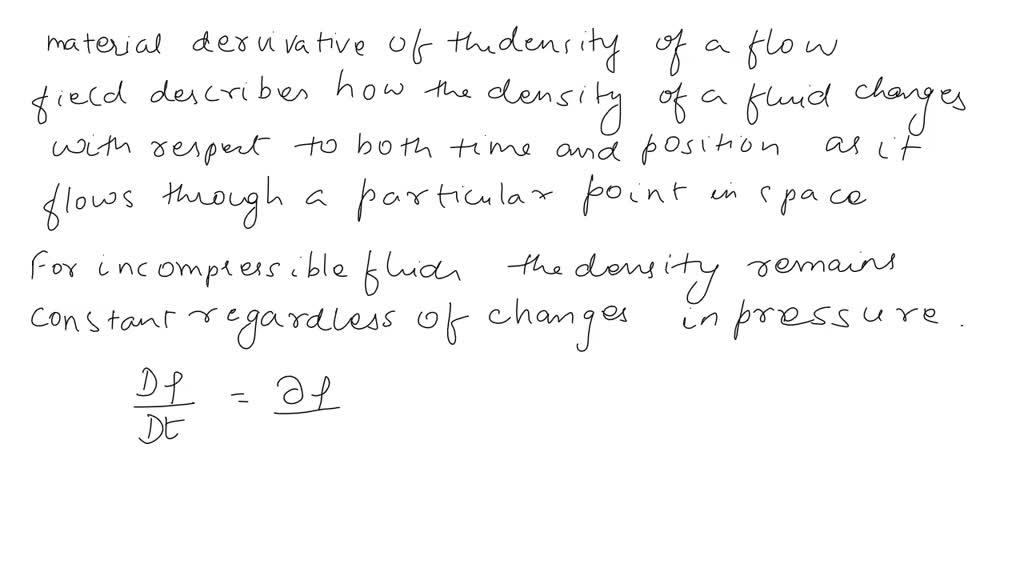 material derivative of the density of a flow
field describes how the density of a fluid changes
with respect to both time and position as it
flows through a particular point in space
For incompressible fluids the density remains
constant regardless of changes in pressure.
Dρ/Dt = ∂ρ/